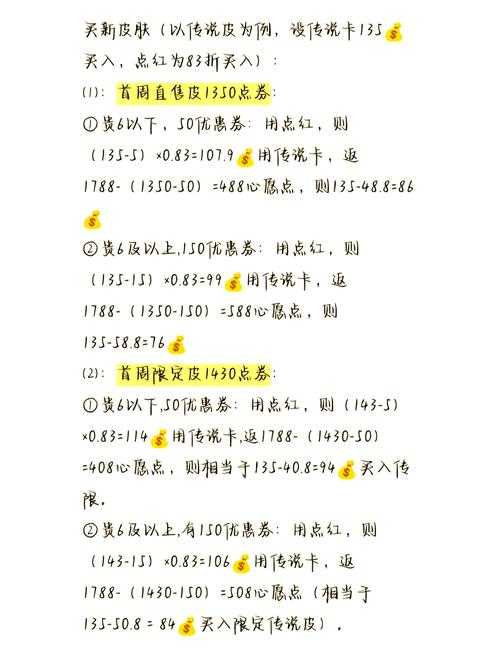 买新皮肤（以传说皮为例，设传说卡135💰
买入，点红为83折买入）:
(1): 首周直售皮1350点券:
①贵6以下，50优惠券：用点红，则
（135-5）×0.83=107.9💰用传说卡，返
1788-（1350-50）=488心愿点，则135-48.8=86
💰
②贵6及以上,150优惠券：用点红，则
（135-15）×0.83=99💰用传说卡，返
1788-（1350-150）=588心愿点，则
135-58.8=76💰
(2): 首周限定皮1430点券:
①贵6以下,50优惠券：用点红，则（143-5）
×0.83=114💰用传说卡,返1788-（1430-50）
=408心愿点，则相当于135-40.8=94💰买入传
限。
②贵6及以上,有150优惠券：用点红，则
（143-15）×0.83=106💰用传说卡，返
1788-（1430-150）=508心愿点（相当于
135-50.8=84💰买入限定传说皮）。